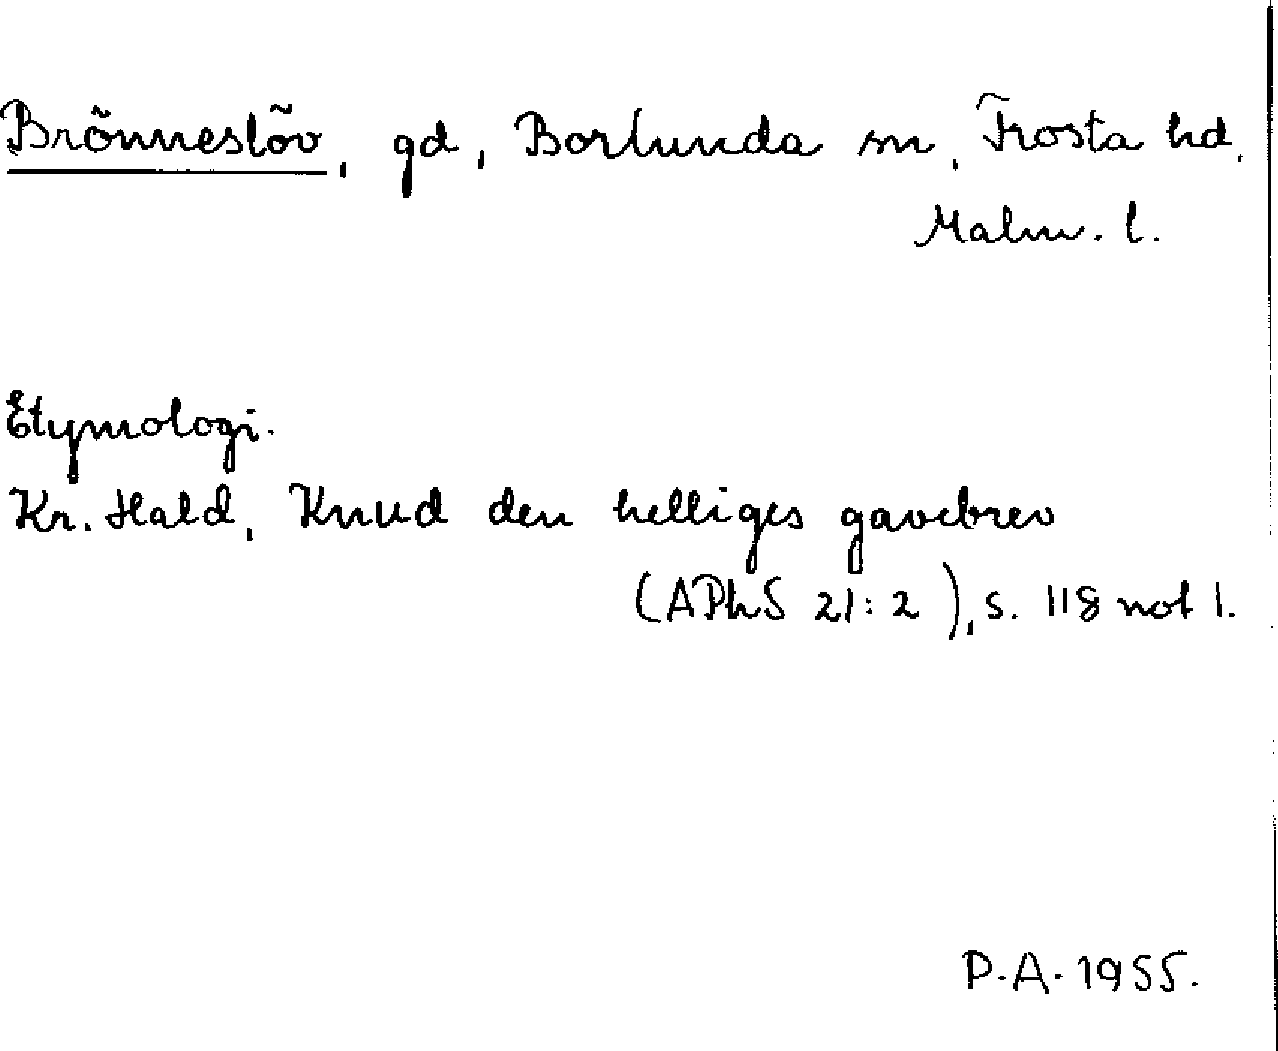 Brönneslöv, gd, Borlunda sn, Frosta hd,
Malm. l.
Etymologi.
Kr. Hald, Knud den helliges gavebrev
(APhS 21:2), s. 118 not 1.
P.A. 1955.